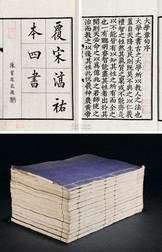 大學章句序
大學之書古之大學所以教人之法也
蓋自天降生民則既莫不與之以仁義
禮智之性矣然其氣質之稟或不能齊是
以不能皆有以知其性之所有而全之
也一有聰明睿智能盡其性者出於其
間則天必命之以為億兆之君師使之
治而教之以復其性此伏羲神農黃帝
覆宋淳祐
本四書